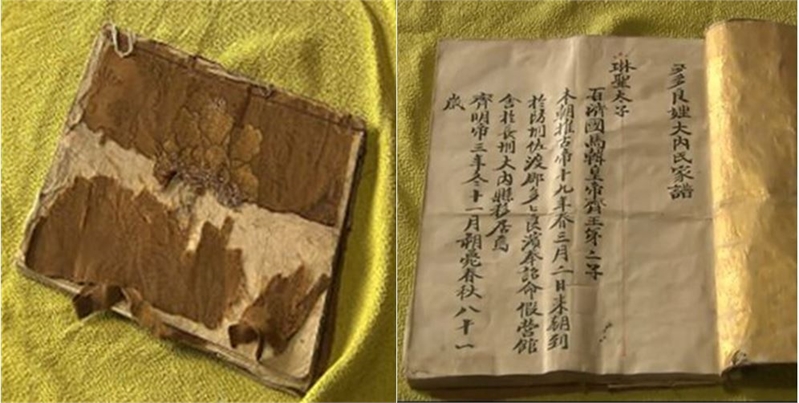 多多良姓大内氏家譜
琳聖太子
百濟國馬韓皇帝齊王第三子
本朝推古帝十九年春三月二日来朝到
於防州佐波郡多々良濱奉詔命假營館
舎於長州大内縣移居焉
齊明帝三年冬十一月朔薨春秋八十一
歳